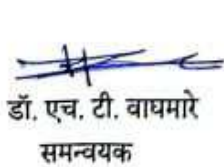 डॉ. एच. टी. वाघमारे
समन्वयक